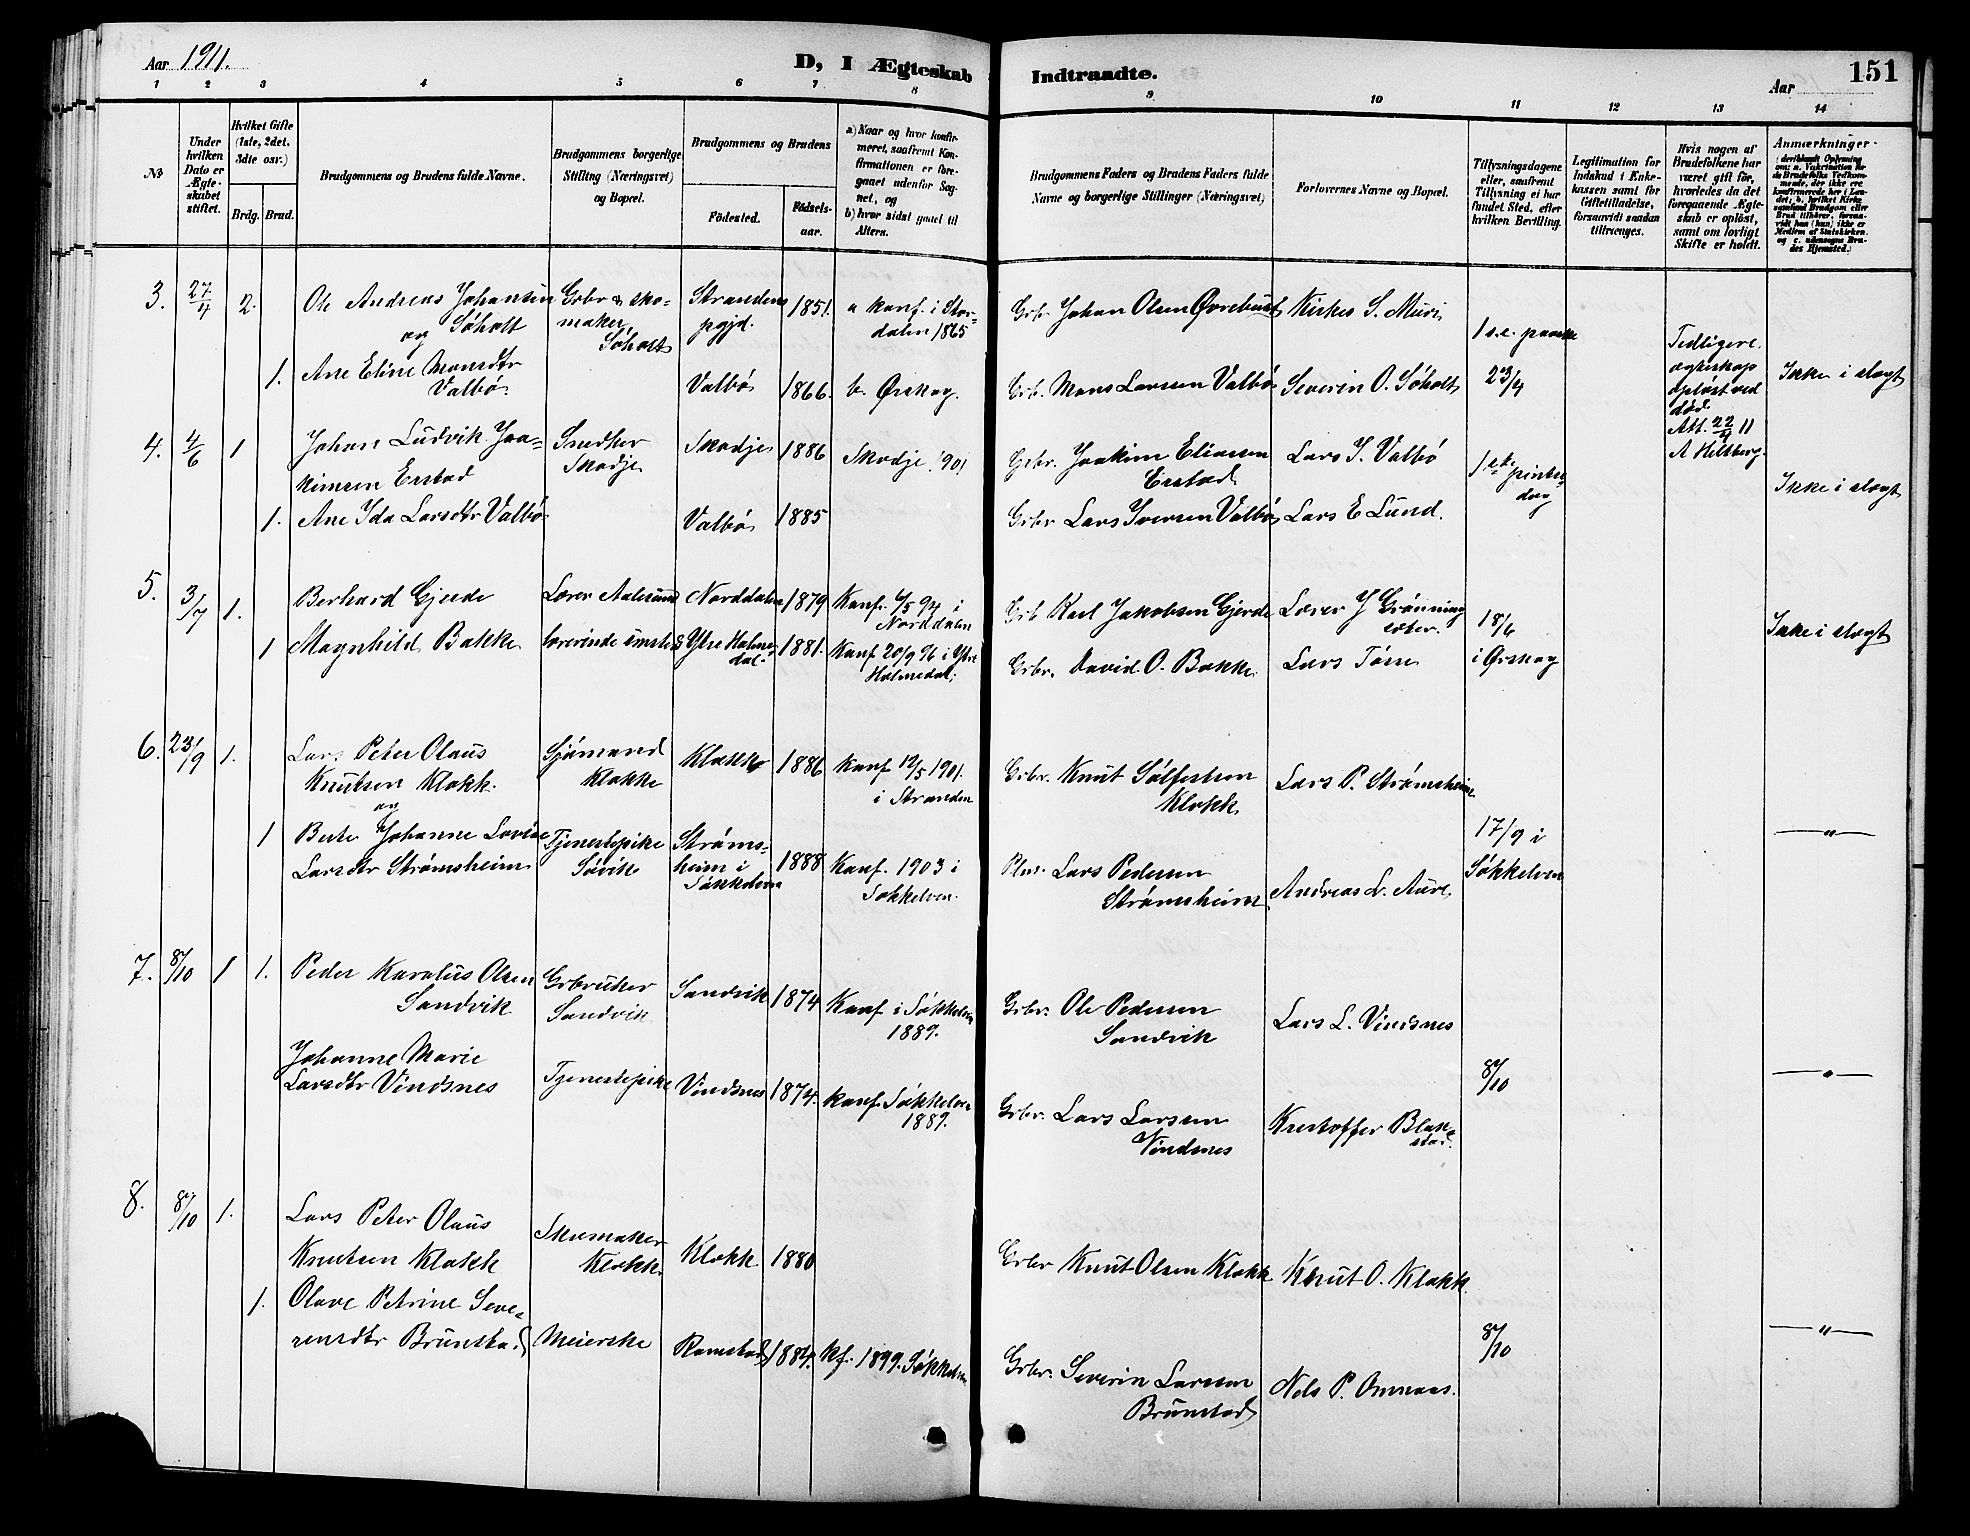 Aar 1911.
D, I Ægteskab
Indtraadte.
Aar
151
1 2 3 4 5 6 7 8 9 10 11 12 13 14
№
Under hvilken Dato er Ægteskabet stiftet.
Hvilket Gifte (1ste, 2det, 3die osv.)
Brdg. Brud.
Brudgommens og Brudens fulde Navne.
Brudgommens borgerlige Stilling (Næringsvei) og Bopæl.
Brudgommens og Brudens
Fødested.
Fødselsaar.
a) Naar og hvor konfirmeret, saafremt Konfirmationen er foregaaet udenfor Sognet, og
b) hvor sidst gaaet til Alters.
Brudgommens Faders og Brudens Faders fulde Navne og borgerlige Stillinger (Næringsvei)
Forlovernes Navne og Bopæl.
Tillysningsdagene eller, saafremt Tillysning ei har fundet Sted, efter hvilken Bevilling.
Legitimation for Indskud i Enkekassen samt for Giftetilladelse, forsaavidt saadan tiltrænges.
Hvis nogen af Brudefolkene har været gift før, hvorledes da det foregaaende Ægteskab er opløst, samt om lovligt Skifte er holdt.
Anmærkninger
3. 27/4 2. Ole Andreas Johansen
og Søholt
Grbr & skomaker
Søholt
Strandens pgjd.
1851.
a konf. i Stordalen 1865
Grbr. Johan Olsen Øvrebust
Kirkes. S. Muri
1 s.e. paaske
1. Ane Eline Monsdtr
Valbø.
Valbø
1866.
b. Ørskog.
Grbr. Mons Larssen Valbø
Severin O. Søholt
23/4
Tidligere
egteskap
opløst ved
død.
Att. 22/4 11
Ikke i slegt
4. 4/6 1 Johan Ludvik Joakimsen Erstad
Snedker
Skodje
Skodje
1886
Skodje 1901
Grbr. Joakim Eliassen
Erstad
Lars I. Valbø
1ste pintsedag
1. Ane Ida Larsdtr Valbø
Valbø
1885
Grbr Lars Iversen Valbø
Lars E Lund.
Ikke i slegt
5. 3/7 1. Berhard Gjerde
Lærer Aalesund
Norddalen
1879
Konf. 4/5 94 i
Norddalen
Grb Karl Jakobsen Gjerde
Lærer J Grønningsæter.
18/6
1 Magnhild Bakke
Lærerinde
Ytre Holmedal.
1881.
Konf 20/9 96 i Ytre
Holmedal.
Grbr. David. O. Bakke.
Lars Tøsse
i Ørskog
Ikke i slegt
6. 23/9 1. Lars Peter Olaus
Knutsen Klokk.
og
Sjømand
Klokke
Klokk
1886
Konf 12/5 1901.
i Stranden
Grbr. Knut Sølfestsen
Klokk
Lars P. Strømsheim
1 Berte Johanne Lovise
Larsdtr Strømsheim
Tjenestepike
Søvik
Strømsheim i
Søkkelven
1888
Konf. 1903 i
Søkkelven.
Plm. Lars Pedersen
Strømsheim
Andreas L. Aure.
17/9 i
Søkkelven
— " —
7. 8/10 1 1. Peder Karolus Olsen
Sandvik
Grbruker
Sandvik
Sandvik
1874
Konf i Søkkelven
1889.
Grbr. Ole Pedersen
Sandvik
Lars L. Vindsnes
Johanne Marie
Larsdtr Vindsnes
Tjenestepike
Vindsnes
1874.
Konf. Søkkelven
1889.
Grbr. Lars Larssen
Vindsnes
Kristoffer Blakstad.
8/10
— " —
8. 8/10 1. Lars Peter Olaus
Knutsen Klokk
Skomaker
Klokk.
Klokk
1880
Grbr Knut Olsen Klokk
Knut O. Klokk.
1. Olave Petrine Severinsdtr Brunstad
Meierske
Ramstad
1884.
kf. 1899. Søkkelven
Grbr. Severin Larssen
Brunstad
Nils P. Ommaas.
8/10
— " —